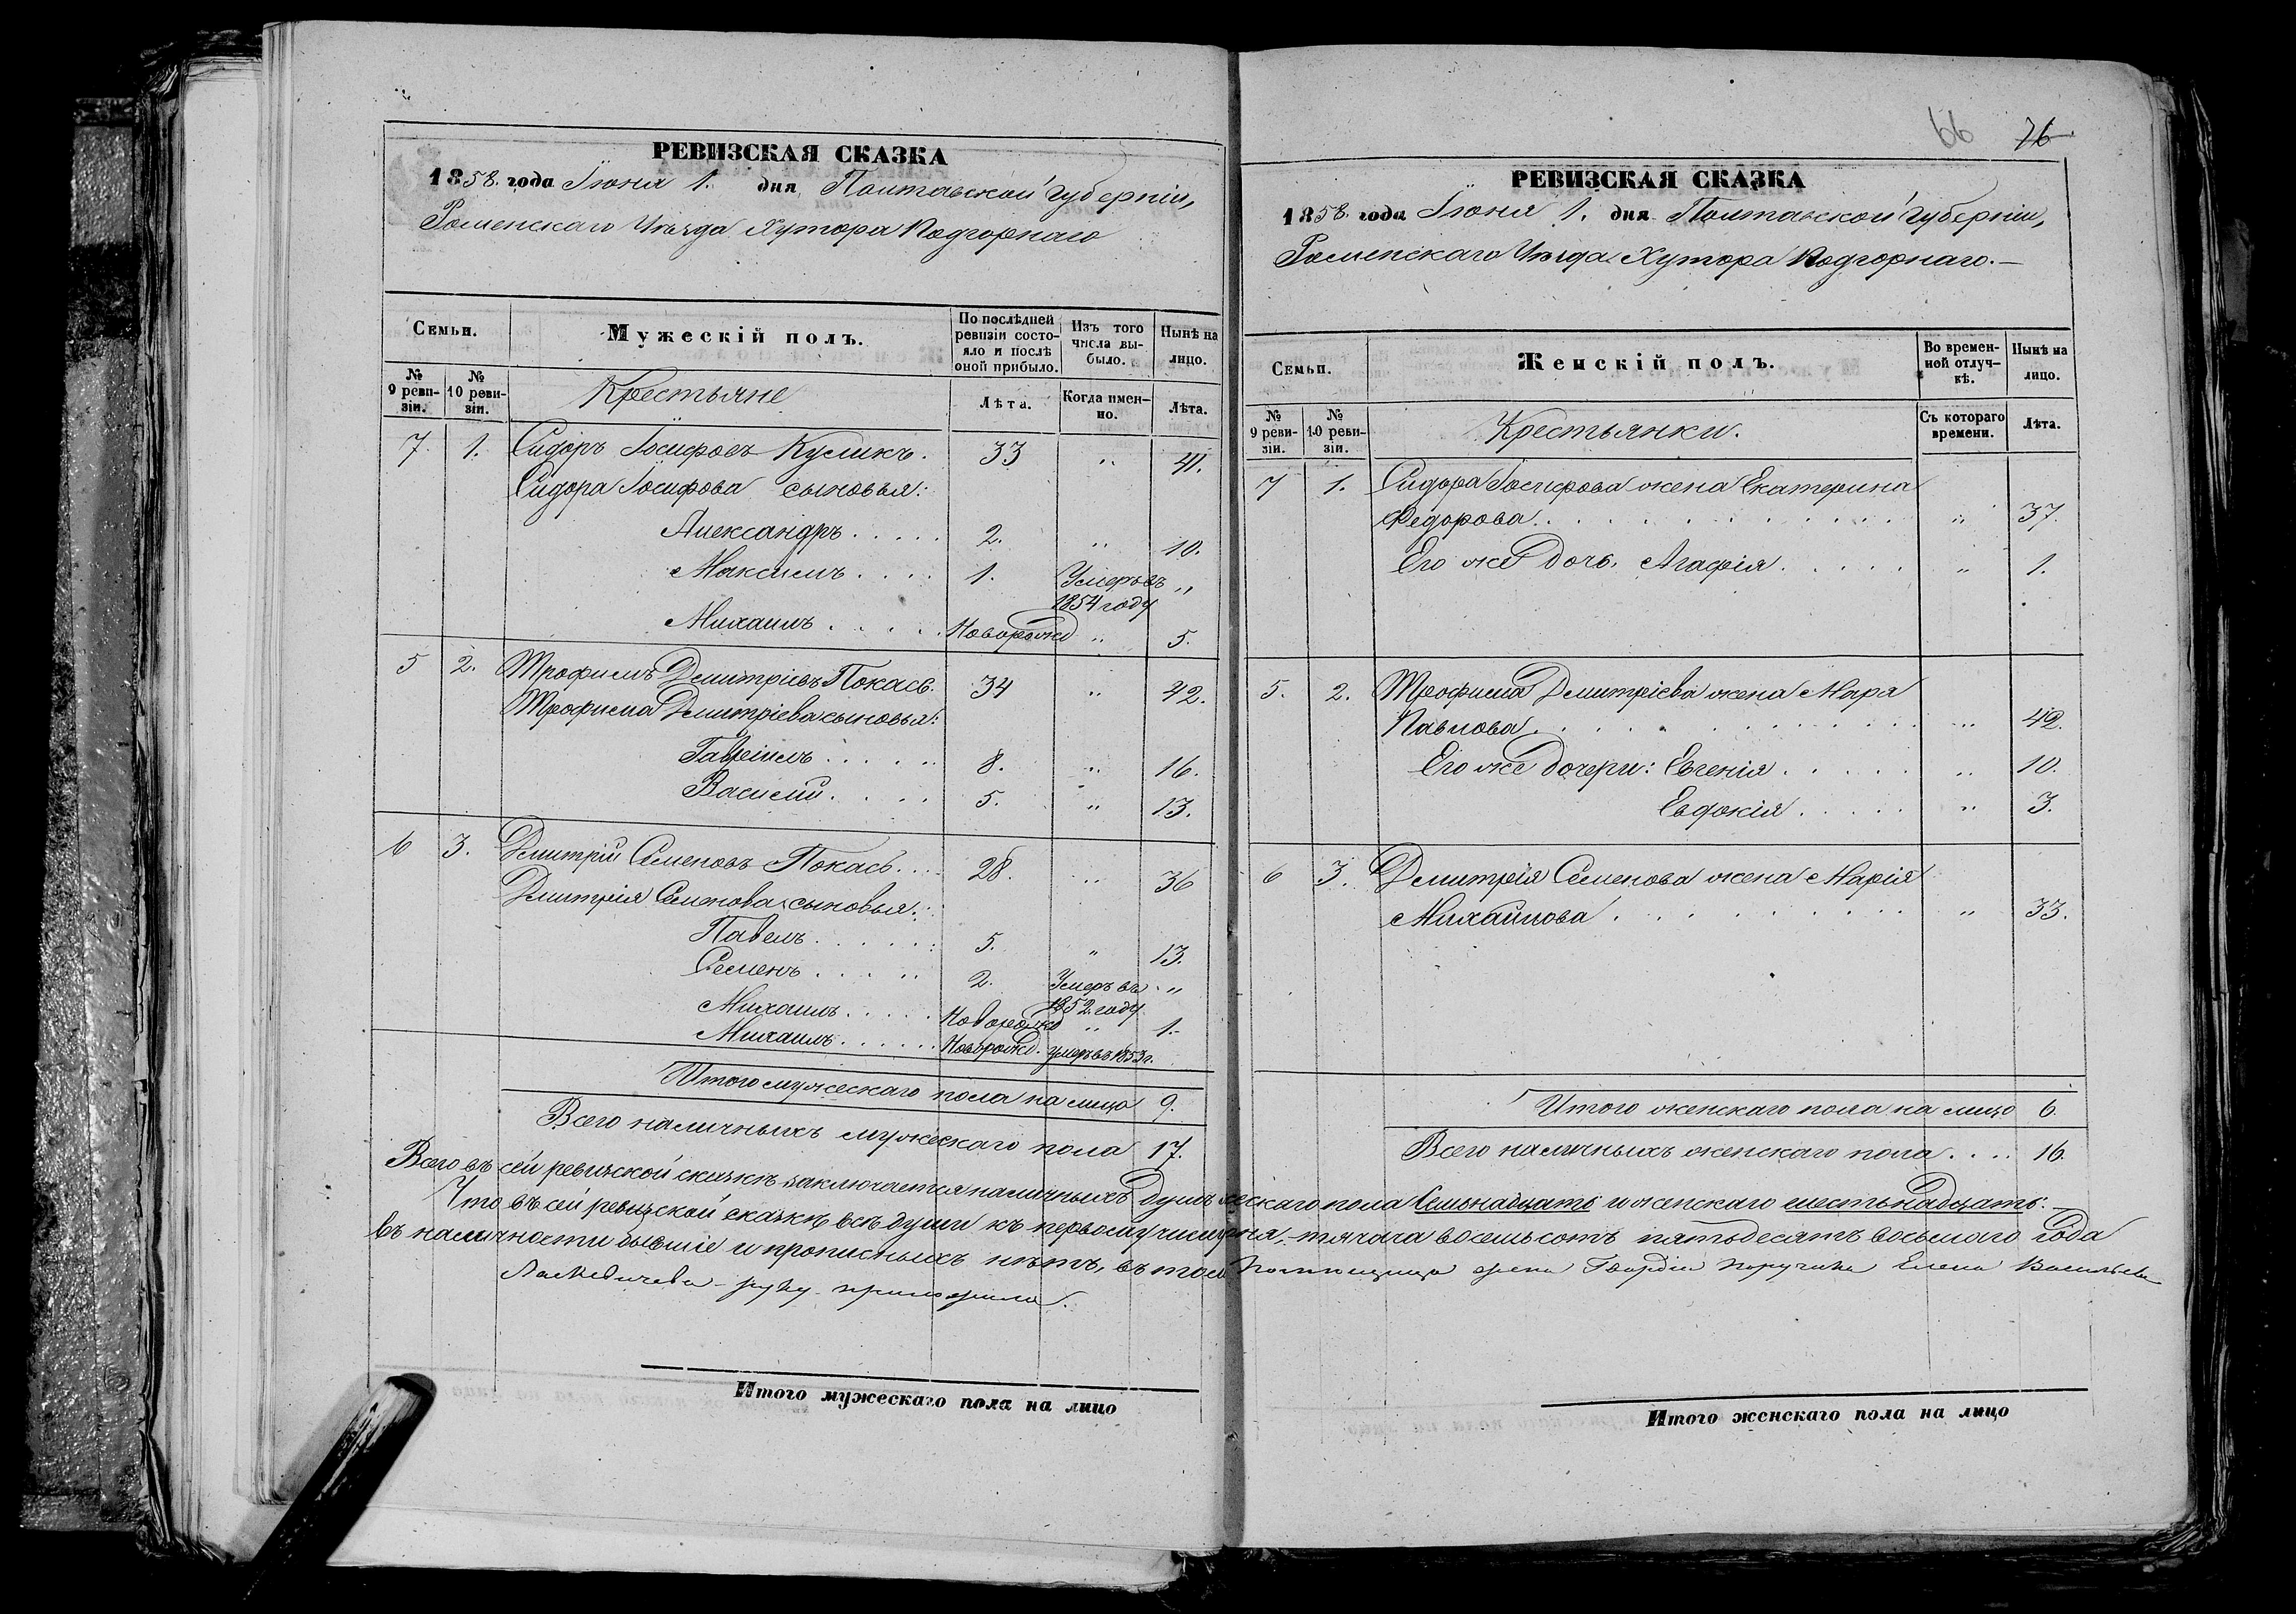 РЕВИЗСКАЯ СКАЗКА
1858. года Іюня 1. дня Полтавской Губерніи,
Роменскаго Уѣзда Хутора Подгорнаго
Семьи.
Мужескій полъ.
По послѣдней ревизіи состояло и послѣ оной прибыло.
Изъ того числа выбыло.
Нынѣ на лицо.
№ 9 ревизіи.
№ 10 ревизіи.
Крестьяне
Лѣта.
Когда именно.
Лѣта.
7. 1. Сидоръ Іосифовъ Куликъ. 33 " 41.
Сидора Іосифова сыновья:
Александръ..... 2. " 10.
Максимъ.... 1. Умеръ въ "
1854 году
Михаилъ..... Новорожд " 5.
5 2. Трофимъ Дмитріевъ Покасъ. 34 " 42.
Трофима Дмитріева сыновья:
Гавріилъ..... 8. " 16.
Василій.... 5. " 13.
6 3. Дмитрій Семеновъ Покасъ... 28. " 36
Дмитрія Семенова сыновья:
Павелъ...... 5. " 13.
Семенъ..... 2. Умеръ въ "
1852 году
Михаилъ..... Новорожд " 1.
Михаилъ...... Новорожд. умеръ въ 1853 г.
Итого мужескаго пола на лицо 9.
Всего наличныхъ мужескаго пола 17.
66 76
РЕВИЗСКАЯ СКАЗКА
1858. года Іюня 1. дня Полтавской Губерніи,
Роменскаго Уѣзда Хутора Подгорнаго.—
Семьи.
Женскій полъ.
Во временной отлучкѣ.
Нынѣ на лицо.
№ 9 ревизіи.
№ 10 ревизіи.
Крестьянки.
Съ котораго времени.
Лѣта.
7 1. Сидора Іосифова жена Екатерина
Федорова............ " 37.
Его же дочь. Агафія..... " 1.
5. 2. Трофима Дмитріева жена Маря
Павлова............ " 42.
Его же дочери: Евгенія..... " 10.
Евдокія..... " 3.
6 3. Дмитрія Семенова жена Марія
Михайлова......... " 33.
Итого женскаго пола на лицо 6.
Всего наличныхъ женскаго пола.... 16.
Всего въ сей ревизской сказкѣ заключается наличныхъ душъ мужескаго пола Семьнадцать и женскаго шестьнадцать.
Что въ сей ревизской сказкѣ всѣ души къ первому числу Іюня тысяча восемьсотъ пятьдесятъ восьмаго Года
въ наличности бывшіе и прописныхъ нѣтъ, въ томъ Помѣщица жена Гвардіи поручика Елена Васильева
руку приложила.
Итого мужескаго пола на лицо
Итого женскаго пола на лицо